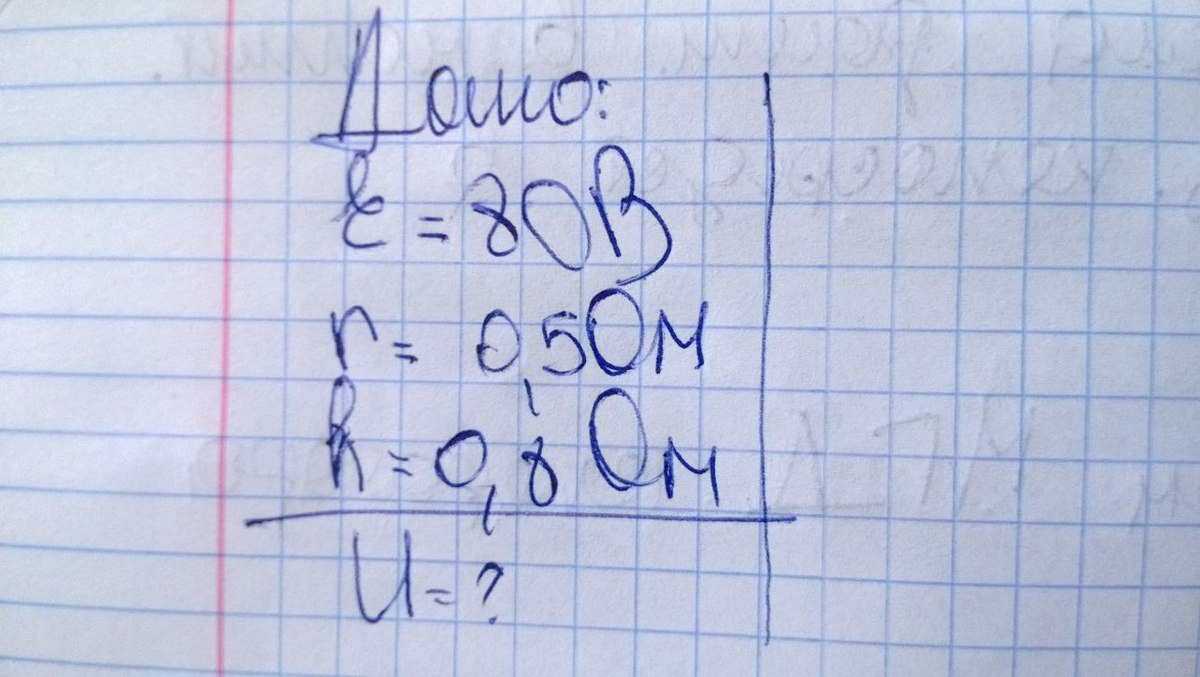 Дано:
ε = 80В
r = 0,5Ом
R = 0,8 Ом
U = ?